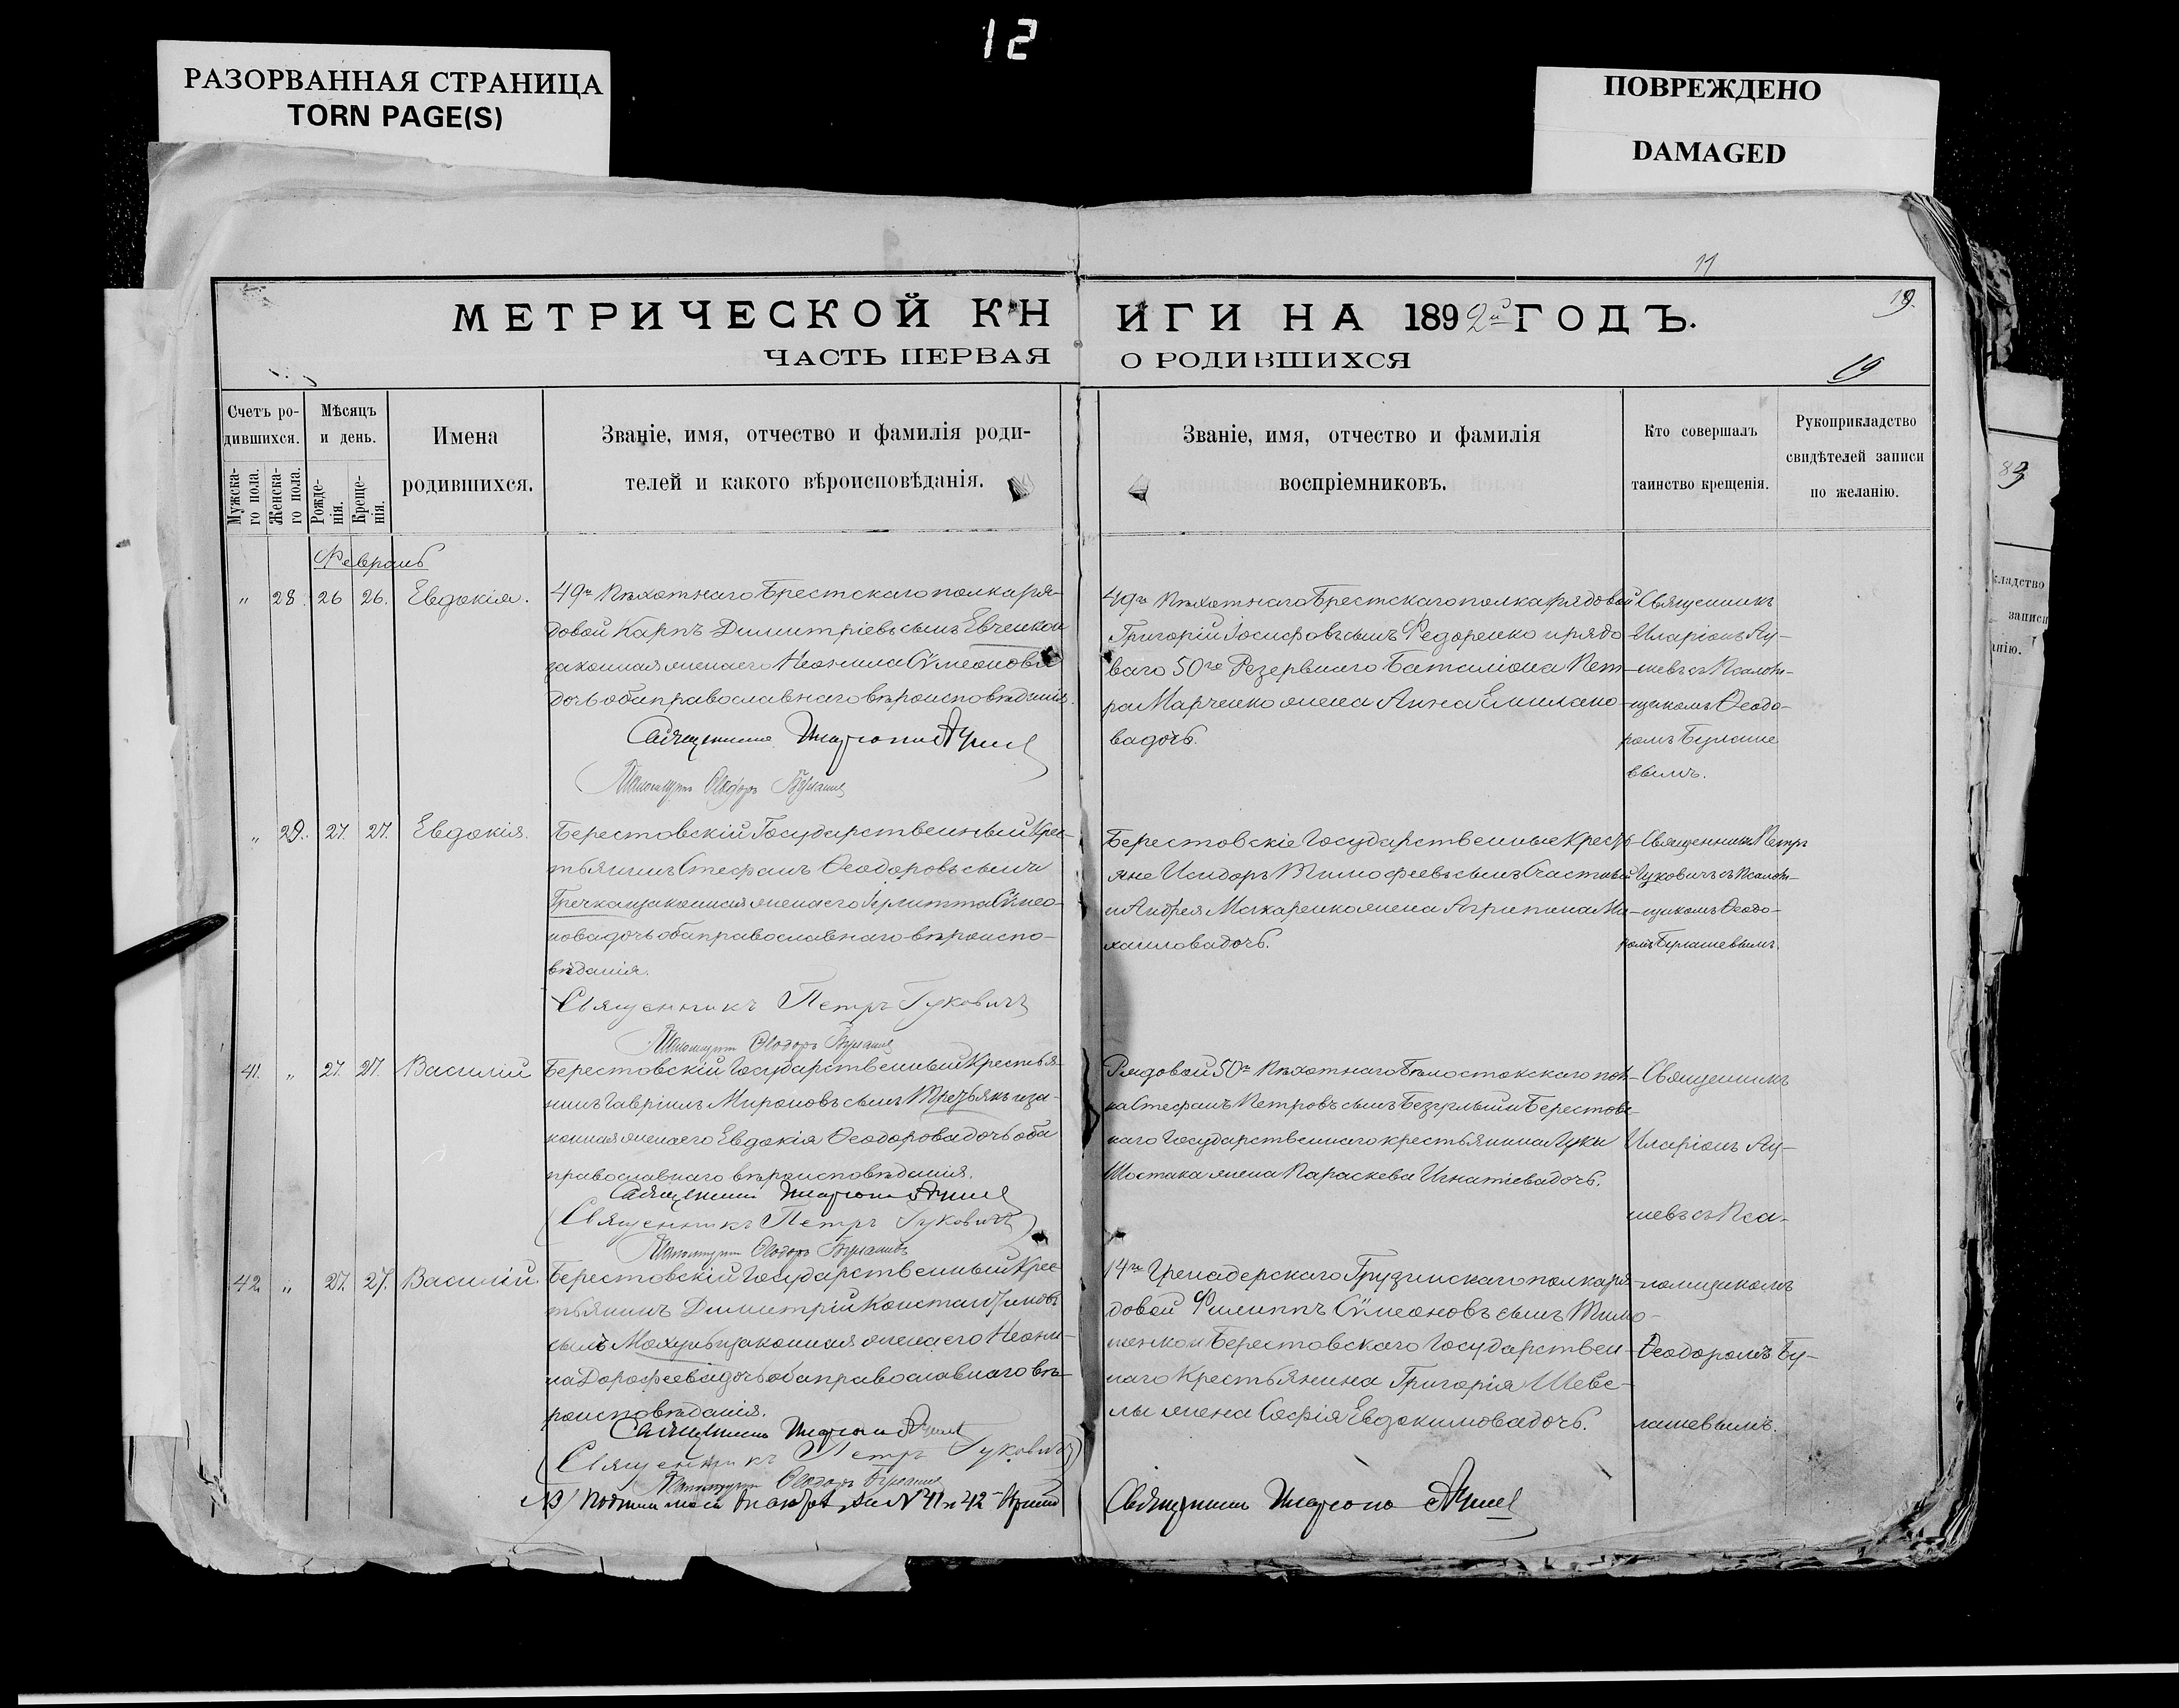 12
РАЗОРВАННАЯ СТРАНИЦА
TORN PAGE(S)
ПОВРЕЖДЕНО
DAMAGED
11
19.
МЕТРИЧЕСКОЙ КН
ИГИ НА 1892й ГОДЪ.
ЧАСТЬ ПЕРВАЯ
О РОДИВШИХСЯ
19
Счетъ ро-
дившихся.
Мужска-
го пола.
Женска-
го пола.
Мѣсяцъ
и день.
Рожде-
нія.
Креще-
нія.
Имена
родившихся.
Званіе, имя, отчество и фамилія роди-
телей и какого вѣроисповѣданія.
Званіе, имя, отчество и фамилія
воспріемниковъ.
Кто совершалъ
таинство крещенія.
Рукоприкладство
свидѣтелей записи
по желанію.
Февраль
" 28. 26 26. Евдокія.
49го Пѣхотнаго Брестскаго полка ря-
довой Карпъ Димитріевъ сынъ Евченко и
законная жена его Неонила Сѵмеонова
дочь оба православнаго вѣроисповѣданія.
Священникъ Иларіонъ
Псаломщикъ Ѳеодоръ Булашев
49го Пѣхотнаго Брестскаго полка рядовой
Григорій Іосифовъ сынъ Федоренко и рядо-
ваго 50го Резервнаго Баталіона Пет-
ра Марченко жена Анна Емилано-
ва дочь.
Священникъ
Иларіонъ
шевъ съ Псалом-
щикомъ Ѳеодо-
ромъ Булаше
вымъ.
" 29. 27. 27. Евдокія.
Берестовскій Государственный Крес-
тьянинъ Стефанъ Ѳеодоровъ сынъ
Гречка и законная жена его Іулитта Сѵмео-
нова дочь оба православнаго вѣроиспо-
вѣданія.
Священникъ Петръ Гуковичъ
Псаломщикъ Ѳеодоръ Булашев
Берестовскіе Государственные Кресть-
яне Исидоръ Тимофеевъ сынъ Счастный
и Андрея Макаренко жена Агрипина Ми-
хаилова дочь.
Священникъ Петръ
Гуковичъ съ Псалом-
щикомъ Ѳеодо-
ромъ Булашевымъ.
41. " 27. 27. Василій
Берестовскій Государственный Крестья-
нинъ Гавріилъ Мироновъ сынъ Третьякъ и за-
конная жена его Евдокія Ѳеодорова дочь оба
православнаго вѣроисповѣданія.
Священникъ Иларіонъ
(Священникъ Петръ Гуковичъ)
Псаломщикъ Ѳеодоръ Булашевъ
Рядовой 50го Пѣхотнаго Бѣлостокскаго пол-
ка Стефанъ Петровъ сынъ и Берестовс-
каго Государственнаго крестьянина Луки
Шостака жена Параскева Игнатіева дочь.
Священникъ
Иларіонъ
шевъ съ Пса-
42 " 27. 27. Василій.
Берестовскій Государственный Крес-
тьянинъ Димитрій Константиновъ
сынъ и законная жена его Неони-
ла Дорофеева дочь оба православнаго вѣ-
роисповѣданія.
Священникъ Иларіонъ
(Священникъ Петръ Гуковичъ)
Псаломщикъ Ѳеодоръ Булашев
14го Гренадерскаго Грузинскаго полка ря-
довой Филиппъ Сѵмеоновъ сынъ Тимо-
шенко и Берестовскаго Государствен-
наго Крестьянина Григорія Шевс-
лы жена Софія Евдокимова дочь.
ломщикомъ
Ѳеодоромъ Бу-
лашевымъ.
№ 41 и 42
Священникъ Иларіонъ
83
кладство
записи
анію.